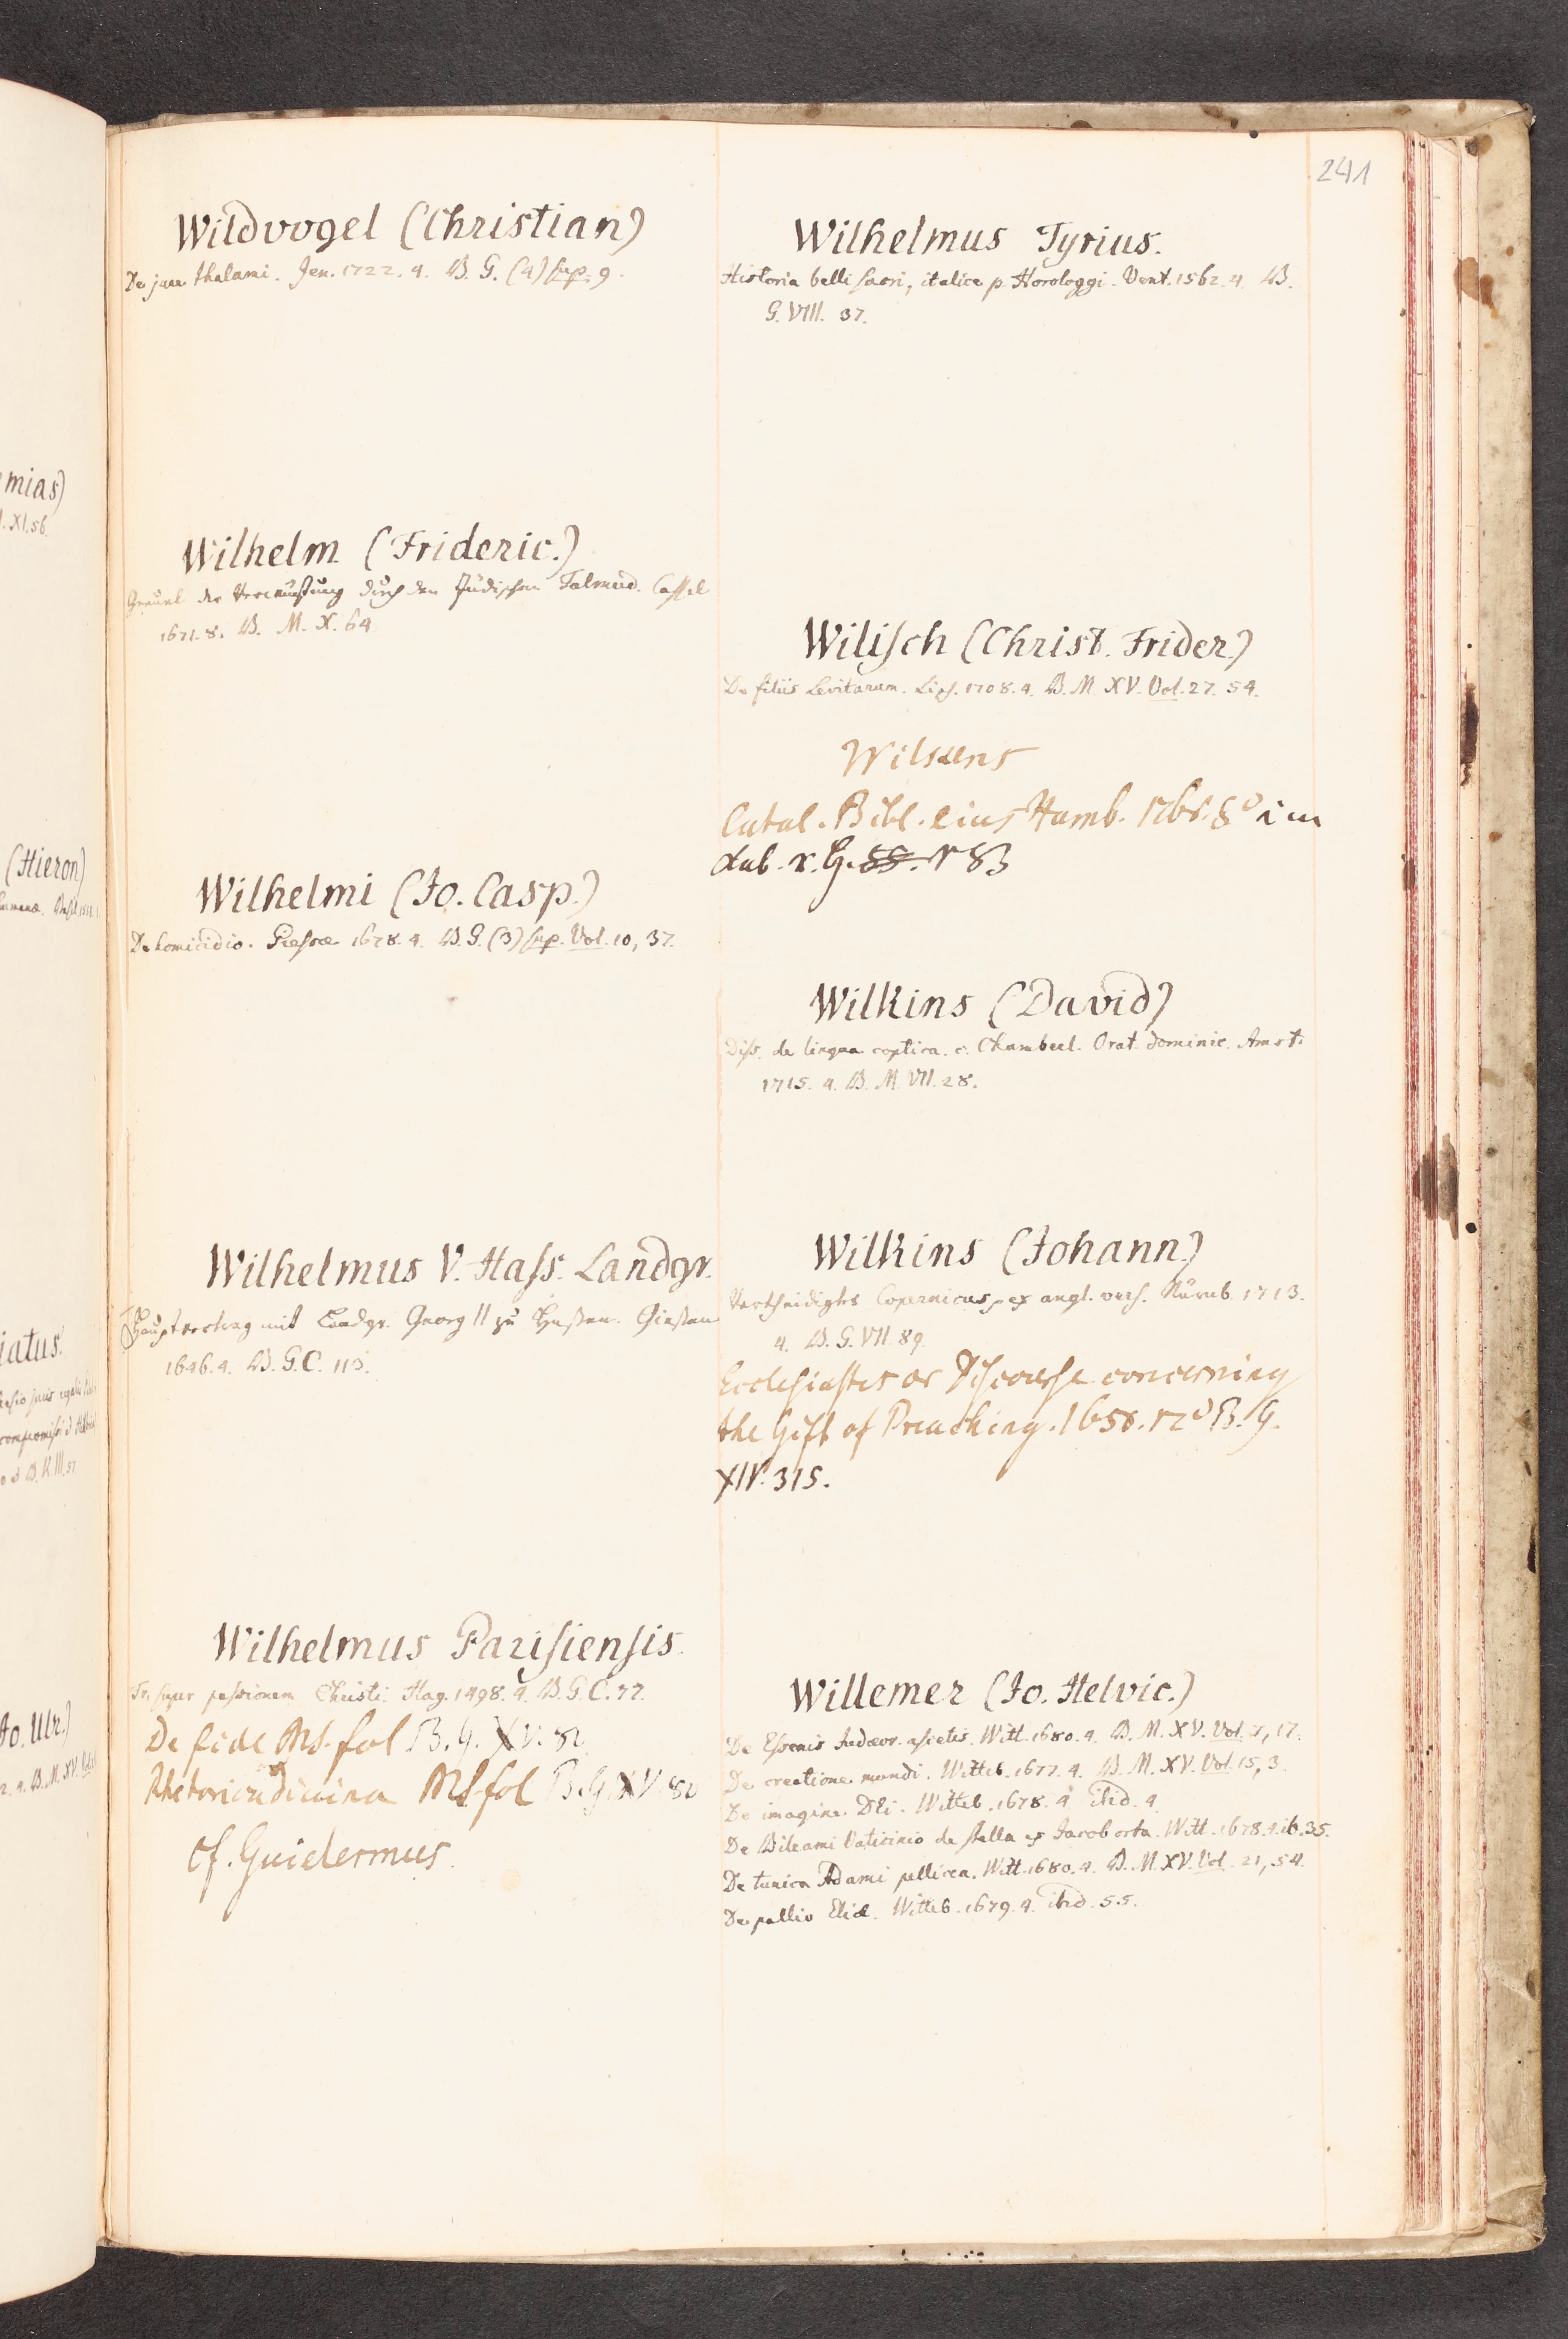 241
Wildvogel (Christian)
De jure thalami. Jen. 1722. 4. B. G. (4) sup. 9.
Wilhelm (Frideric.)
Greuel der Verwüstung durch den Jüdischen Talmud. Cassel
1671. 8. B. M. X. 64
Wilhelmi (Jo. Casp.)
De homicidio. Giessae 1678. 4. B. G. (3) sup. Vol. 10, 37.
Wilhelmus V. Hass. Landgr.
Hauptvertrag mit Landgr. Georg II zu Hessen. Giessen
1646. 4. B. G. C. 113.
Wilhelmus Parisiensis.
Tr. super passionem Christi. Hag. 1498. 4. B. G. C. 77.
De fide Ms. fol B. G. XV. 82
Rhetorica divina Ms fol B. G. XV. 82
cf. Guilermus.
Wilhelmus Tyrius.
Historia belli sacri, italice p. Horologgi. Vent. 1562. 4. B.
G. VIII. 37.
Wilisch (Christ. Frider.)
De filiis Levitarum. Lips. 1708. 4. B. M. XV. Vol. 27. 54.
Wilkens
Catal. Bibl. eius Hamb. 8° im
Cub. r. G. 88. 83
Wilkins (David)
Diss. de lingua coptica. c. Chamberl. Orat. dominic. Amst.
1715. 4. B. M. VII. 28.
Wilkins (Johann)
Vertheidigter Copernicus, ex angl. vers. Nürnb. 1713.
4. B. G. VII. 89.
Ecclesiastes or Discourse concerning
the Gift of Preaching. 1658. 12° B. G.
XIV. 315.
Willemer (Jo. Helvic.)
De Essenis Judaeor. ascetis. Witt. 1680. 4. B. M. XV. Vol. 7, 17.
De creatione mundi. Witteb. 1677. 4. B. M. XV. Vol. 15, 3.
De imagine DEi. Witteb. 1678. 4. ibid. 4.
De Bileami Vaticinio de stella ex Jacob orta. Witt. 1678. 4. ib. 35.
De tunica Adami pellicea. Witt. 1680. 4. B. M. XV. Vol. 21, 54.
De pallio Eliae. Witteb. 1679. 4. ibid. 55.